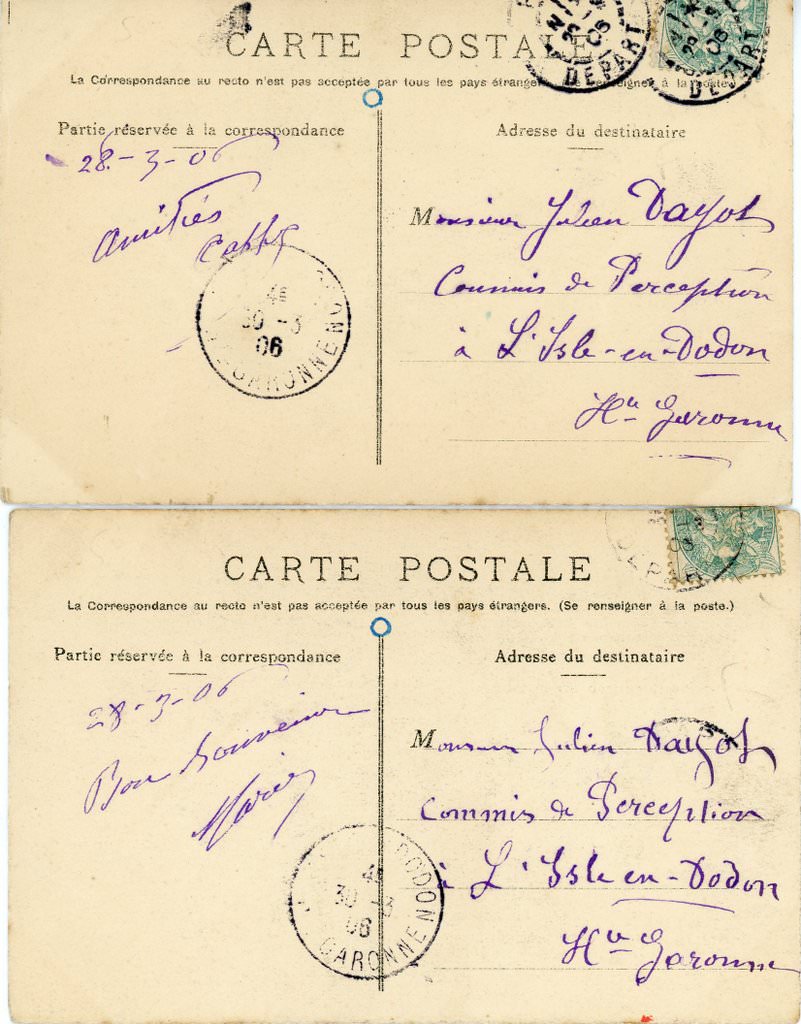 CARTE POSTALE
La Correspondance au recto n'est pas acceptée par tous les pays étrangers. (Se renseigner à la poste.)
Partie réservée à la correspondance
Adresse du destinataire
28-3-06
Amitiés
Monsieur Julien Dayot
Commis de Perception
à L'Isle-en-Dodon
Hte Garonne
DEPART
06
4E
30 -3
06
GARONNE
CARTE POSTALE
La Correspondance au recto n'est pas acceptée par tous les pays étrangers. (Se renseigner à la poste.)
Partie réservée à la correspondance
Adresse du destinataire
28-3-06
Bon Souvenir
Marie
Monsieur Julien Dayot
Commis de Perception
à L'Isle en-Dodon
Hte Garonne
4E
30 -3
06
GARONNE